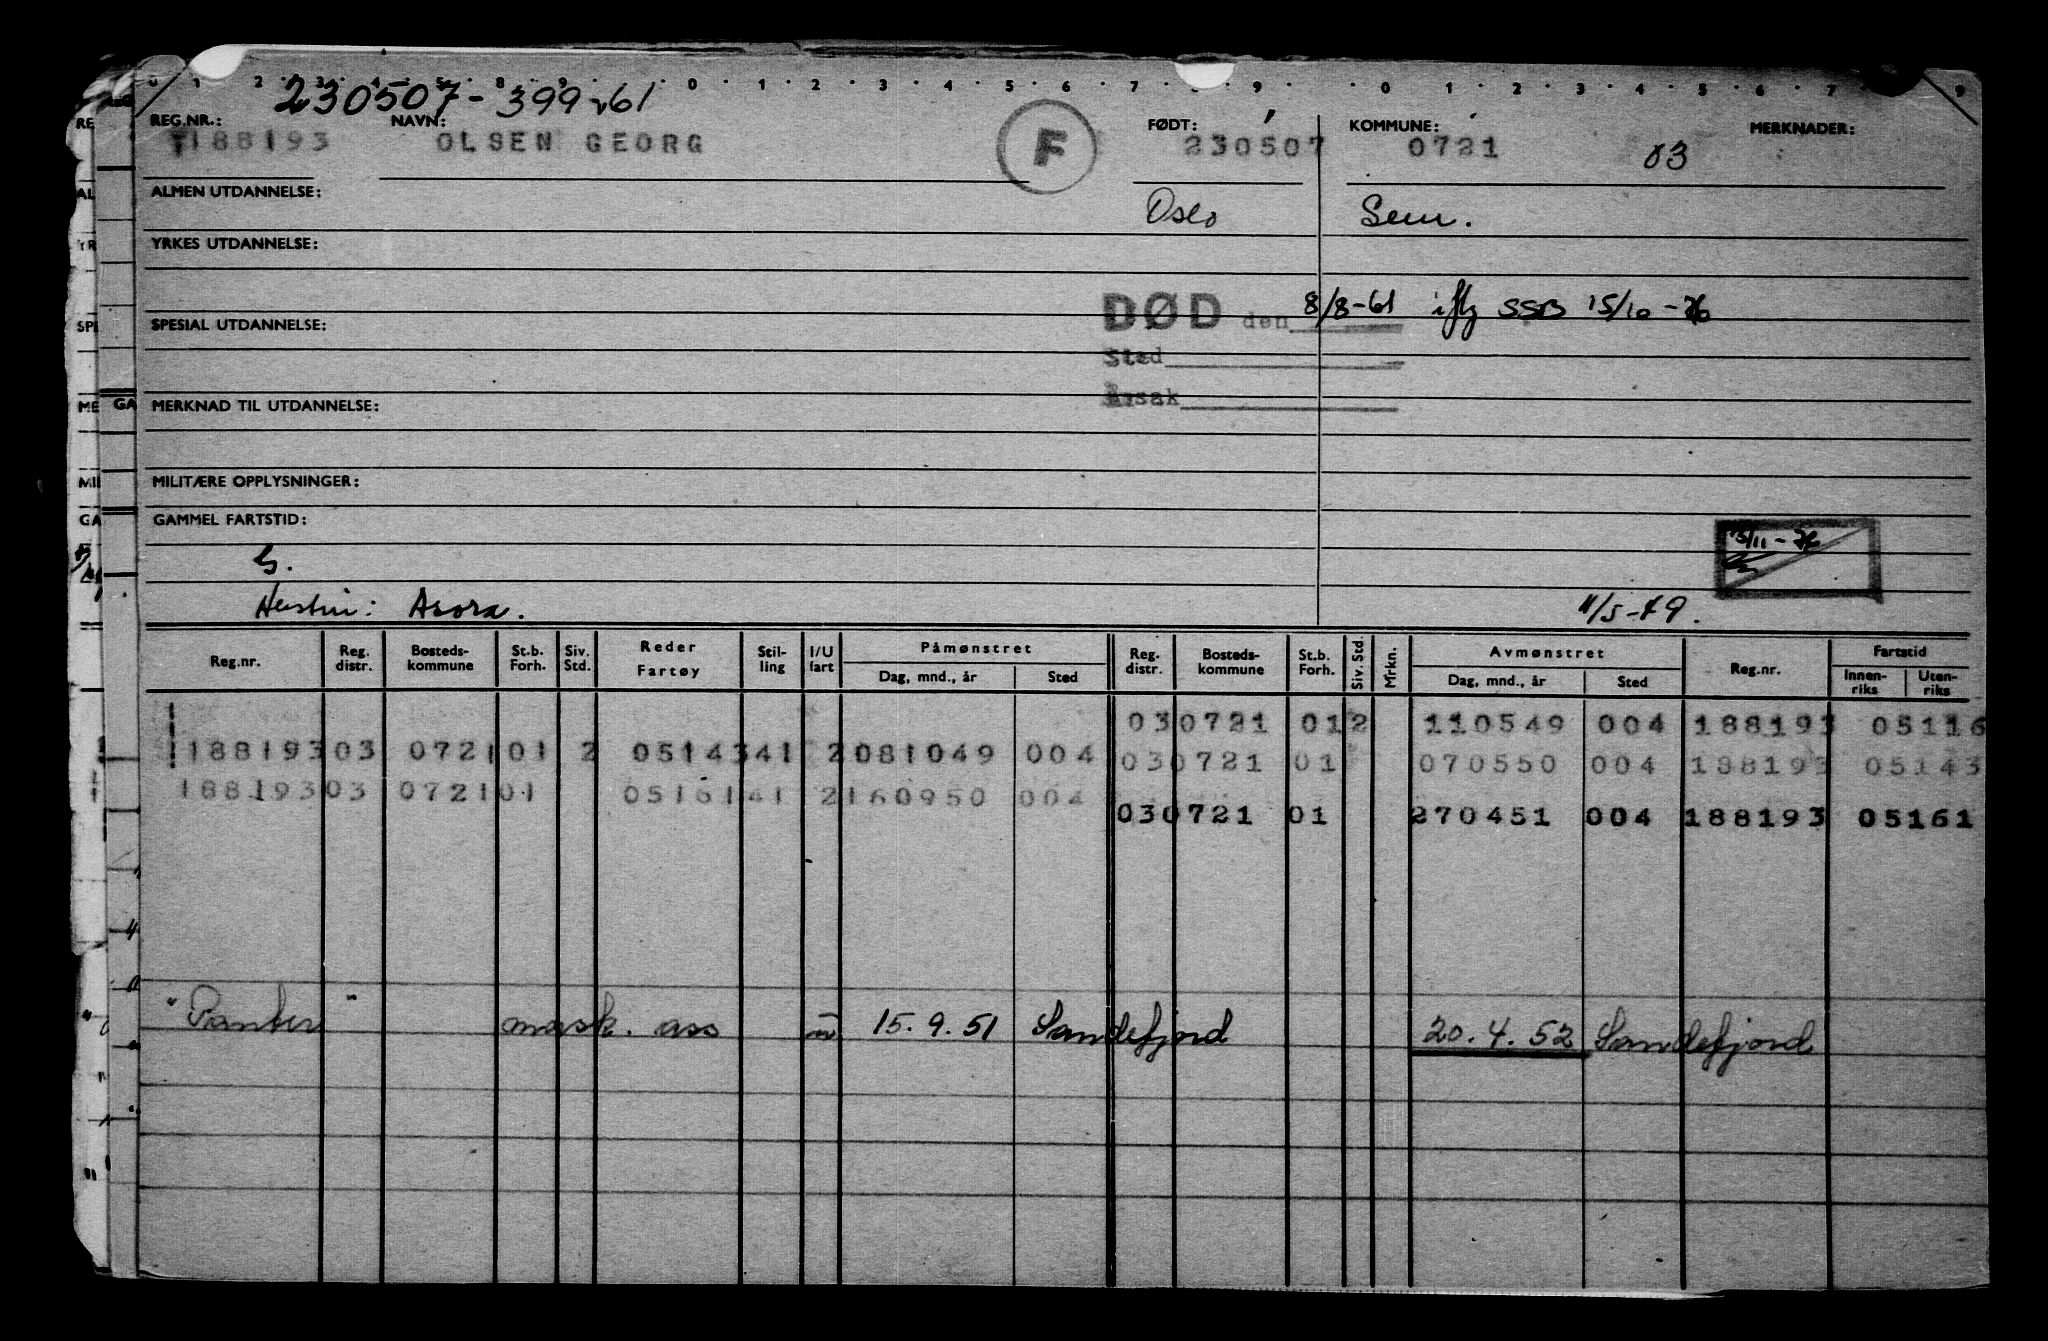 0 1 2 3 4 5 8 9 0 1 2 3 4 5 6 7 9 0 1 2 3 4 5 6 7 9
230507-399 61
REG.NR.: NAVN: FØDT: KOMMUNE: MERKNADER:
188193 OLSEN GEORG F 230507 0721 03
ALMEN UTDANNELSE: Oslo Sem.
YRKES UTDANNELSE:
DØD den 8/8-61 iflg SSB 15/10-76
SPESIAL UTDANNELSE:
Sted
Årsak
MERKNAD TIL UTDANNELSE:
MILITÆRE OPPLYSNINGER:
GAMMEL FARTSTID:
15/11-76
G.
Hustru: Asora. 11/5-49.
Reg.nr. Reg. distr. Bosteds-kommune St.b. Forh. Siv. Std. Reder Fartøy Stil-ling I/U fart Påmønstret Dag, mnd., år Sted Reg. distr. Bosteds-kommune St.b. Forh. Siv. Std. Mrkn. Avmønstret Dag, mnd., år Sted Reg.nr. Fartstid Innen-riks Uten-riks
030721 012 110549 004 188193 05116
188193 03 0721 01 2 05143 41 2 081049 004 030721 01 070550 004 188193 05143
188193 03 0721 01 05161 41 2 160950 004
030721 01 270451 004 188193 05161
"Panter" mask. ass u 15.9.51 Sandefjord 20.4.52 Sandefjord